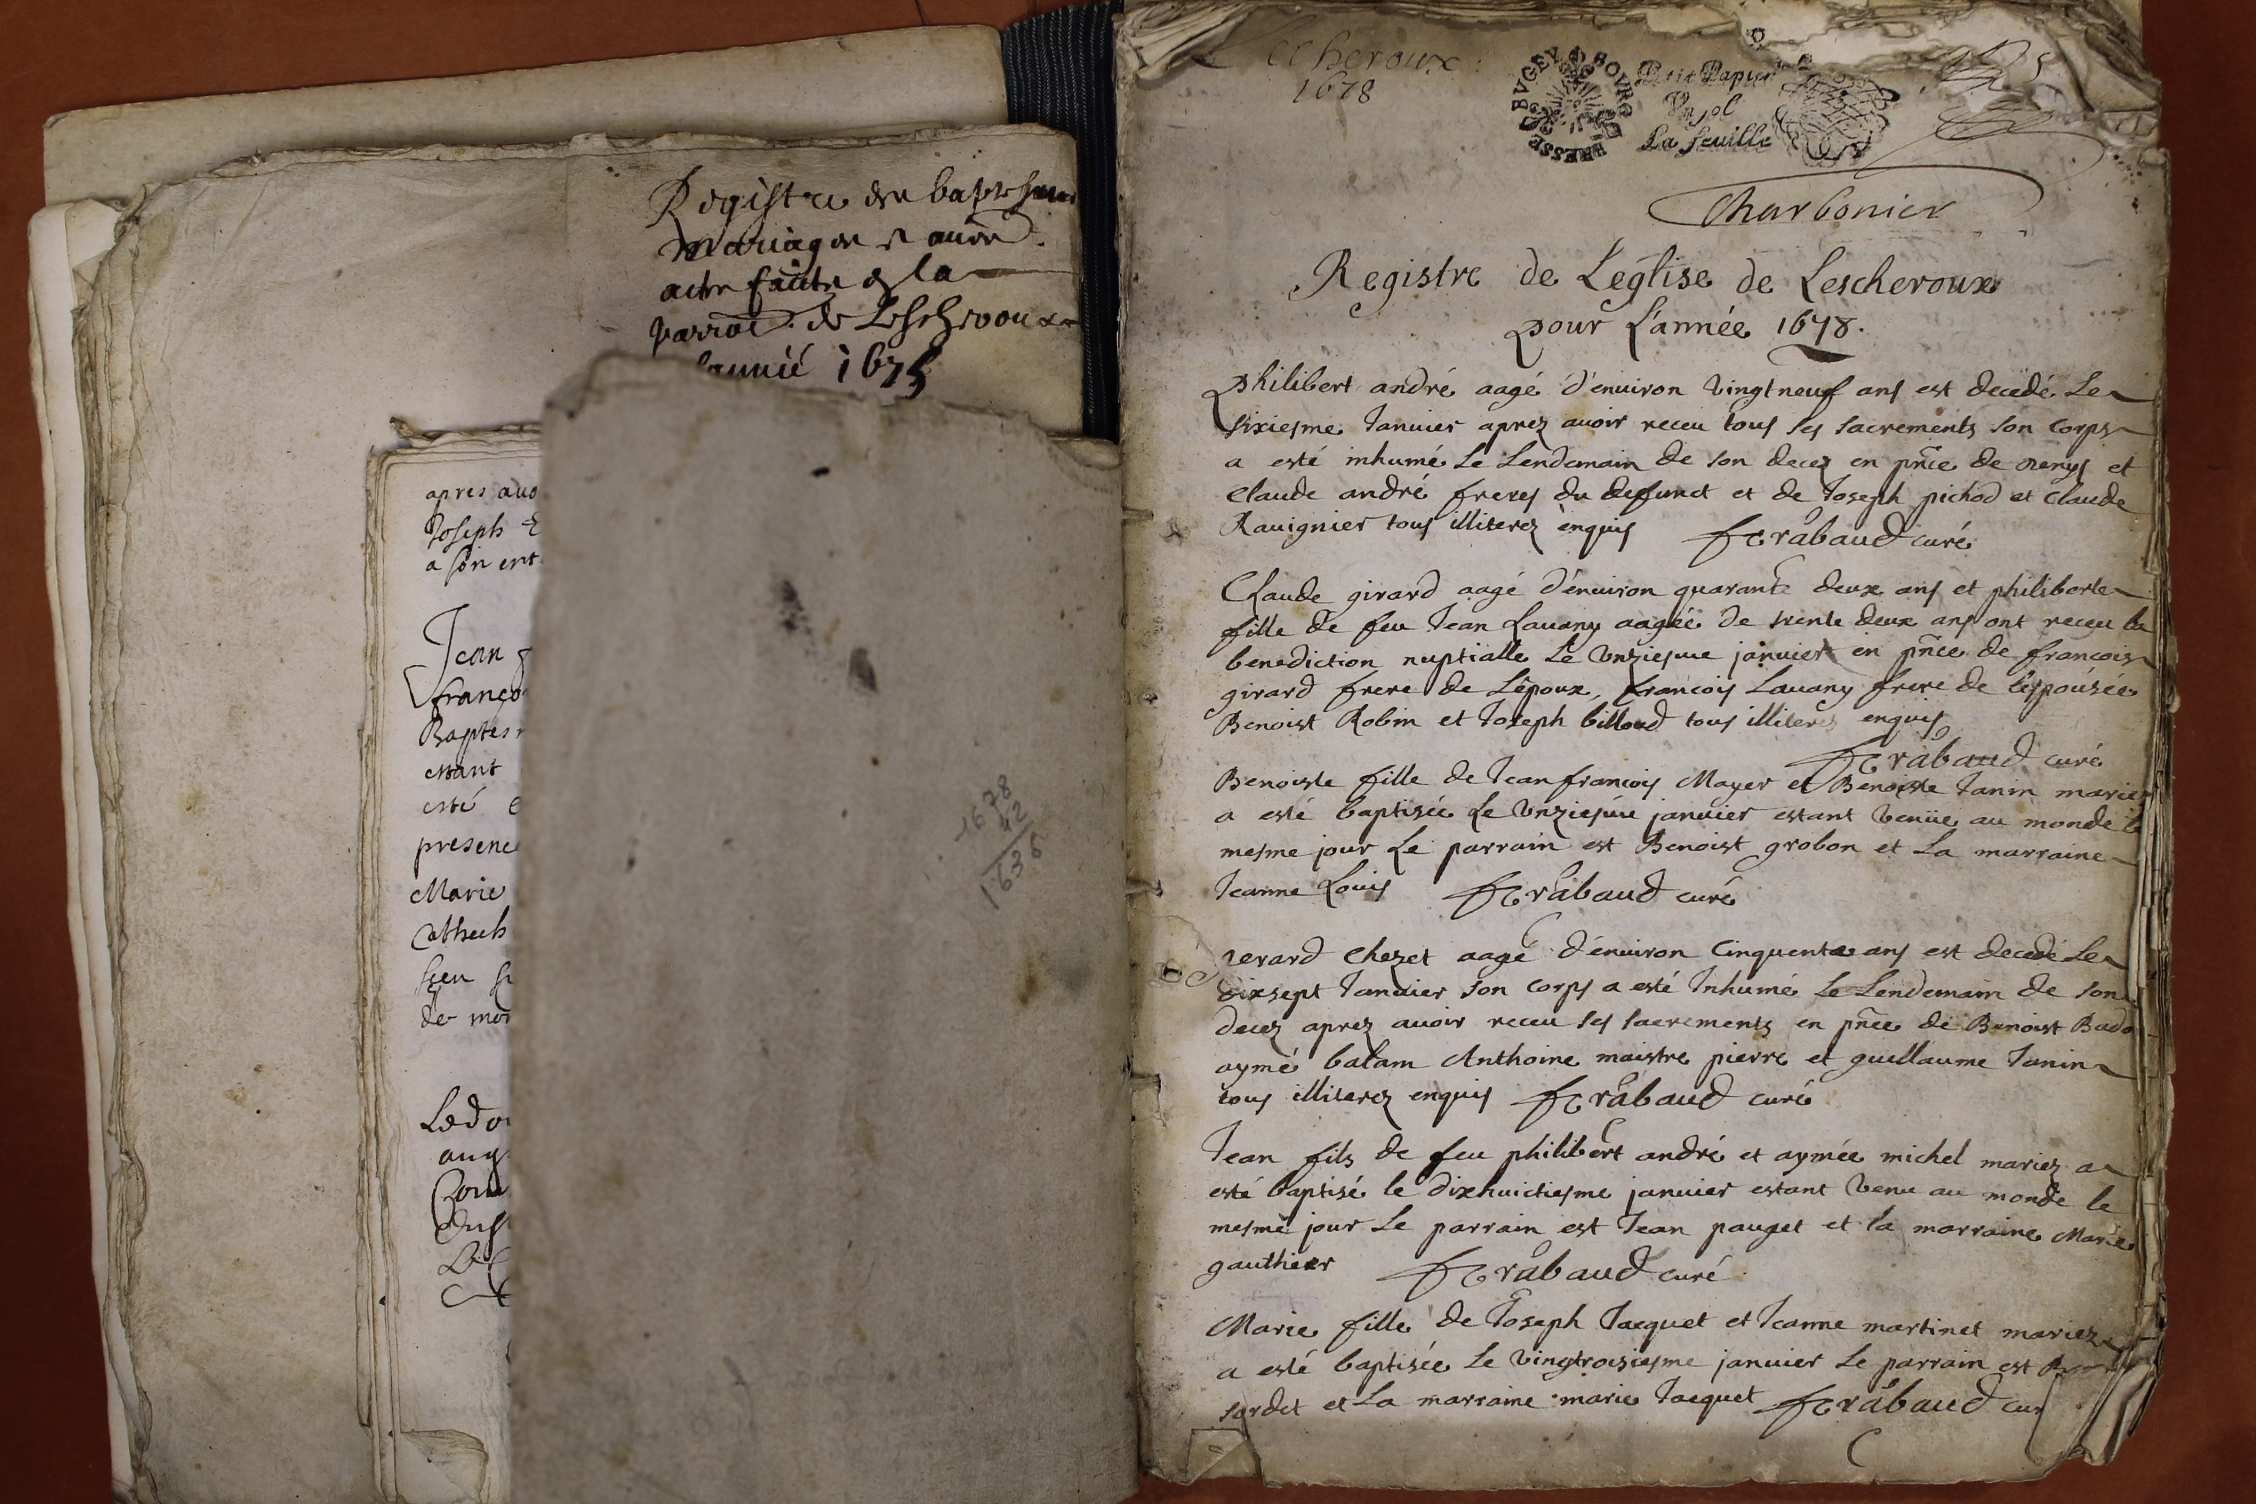 Registre des baptesmes
mariages et autres
actes faicts en la
parroisse de Lescheroux
l'année 1675
apres avo
Joseph
a son ent
Jean
franço
Baptes
estant
esté
presence
Marie
de mon
1678
42
1636
Lescheroux
1678
BVGEY BOVRG BRESSE
Petit Papier
Vn sol
La feuille
Charbonier
Registre de Leglise de Lescheroux
pour L'année 1678.
philibert andré aagé d'enuiron vingtneuf ans est decedé Le
sixiesme Januier aprez auoir receu tous ses sacrements son corps
a esté inhumé Le Lendemain de son decez en pnce de denys et
Claude andré freres du defunct et de Joseph pichod et Claude
Rauignier tous illiterez enquis frabaud curé
Claude girard aagé d'enuiron quarante deux ans et philiberte
fille de feu Jean Lauany aagée de trente deux ans ont receu la
benediction nuptialle Le vnziesme januier en pnce de francois
girard frere de L'époux, francois Lauany frere de L'espousée
Benoist Robin et Joseph billoud tous illiterez enquis
frabaud curé
Benoiste fille de Jean francois Mayer et Benoiste Janin mariez
a esté baptisée Le vnziesme januier estant venüe au monde le
mesme jour Le parrain est Benoist grobon et La marraine
Jeanne Louis frabaud curé
Chezet aagé d'enuiron Cinquente ans est decedé Le
dixsept Januier son corps a esté Inhumé Le Lendemain de son
decez aprez auoir receu ses sacrements en pnce de Benoist Bado
aymé balam Anthoine maistre pierre et guillaume Janin
tous illiterez enquis frabaud curé
Jean fils de feu philibert andré et aymée michel mariez a
esté baptisé le dixhuictiesme januier estant venu au monde le
mesme jour Le parrain est Jean pauget et la marraine Marie
gauthier frabaud curé
Marie fille de Joseph Jacquet et Jeanne martinet mariez
a esté baptisée Le vingtroisiesme januier Le parrain est
sordet et La marraine marie Jacquet frabaud cur